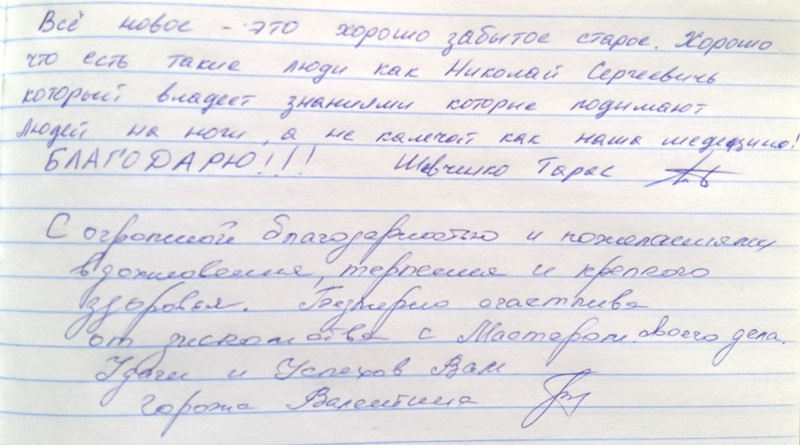 Всё новое - это хорошо забытое старое. Хорошо
что есть такие люди как Николай Сергеевичь
который владеет знаниями которые подимают
людей на ноги, а не калечат как наша медецина!
БЛАГОДАРЮ!!! Шевченко Тарас
С огромной благодарностью и пожеланиями
вдохновения, терпения и крепкого
здоровья. Безмерно счастлива
от знакомства с Мастером своего дела.
Удачи и Успехов Вам
Горожа Валентина